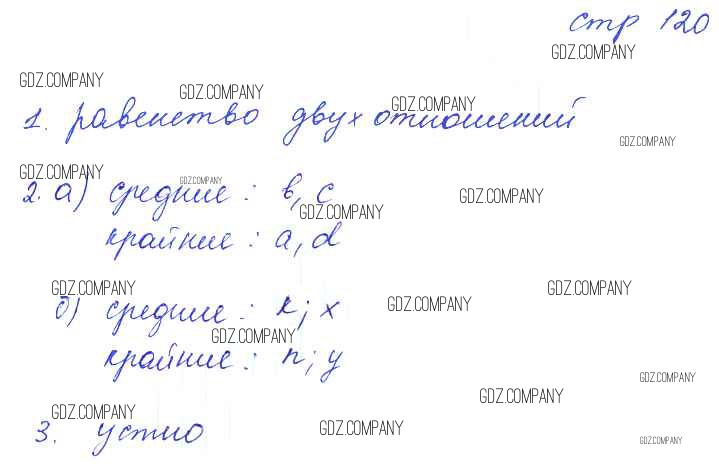 стр 120
GDZ.COMPANY
GDZ.COMPANY
GDZ.COMPANY
GDZ.COMPANY
1. равенство двух отношений
GDZ.COMPANY
GDZ.COMPANY
GDZ.COMPANY
2. а) средние: в, с
GDZ.COMPANY
GDZ.COMPANY
крайние: a, d
GDZ.COMPANY
GDZ.COMPANY
б) средние: к; х
GDZ.COMPANY
GDZ.COMPANY
крайние: n; y
GDZ.COMPANY
GDZ.COMPANY
GDZ.COMPANY
3. устно
GDZ.COMPANY
GDZ.COMPANY